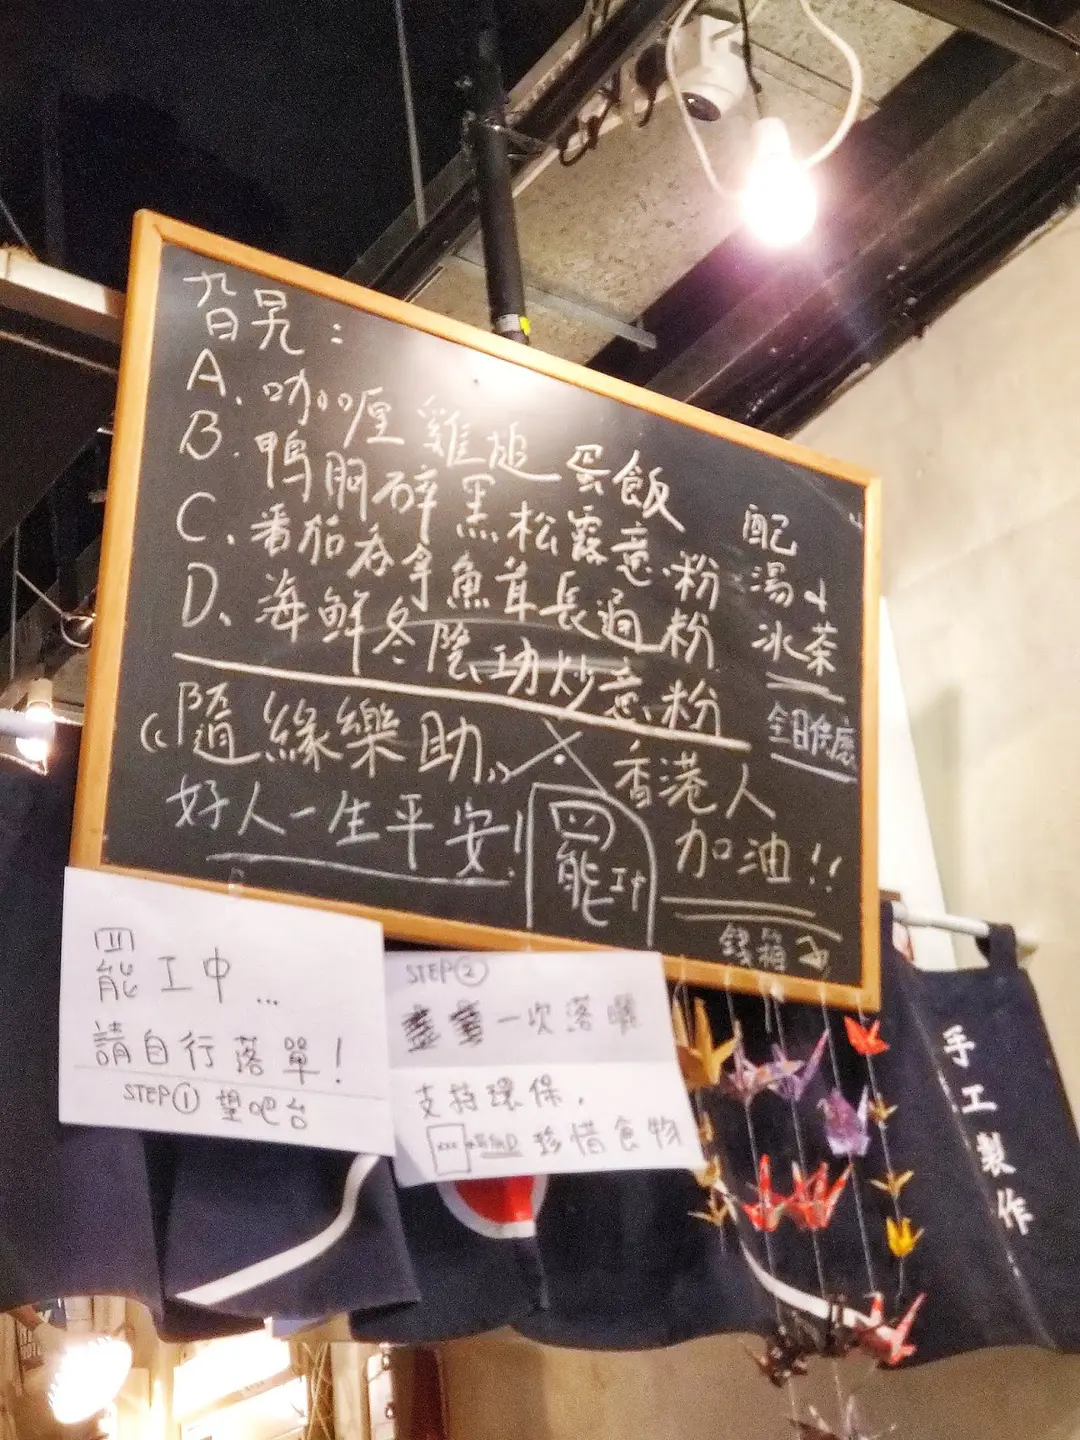 A. 咖喱雞鎚蛋飯
B. 鴨胸碎黑松露意粉
C. 番茄吞拿魚茸長通粉
D. 海鮮冬陰功炒意粉
配
湯+
冰茶
全日供應
《隨緣樂助》
好人一生平安!
罷工中
香港人
加油!!
錢箱
罷工中...
請自行落單!
STEP① 望吧台
STEP②
一次落曬
支持環保,
珍惜食物
手工製作